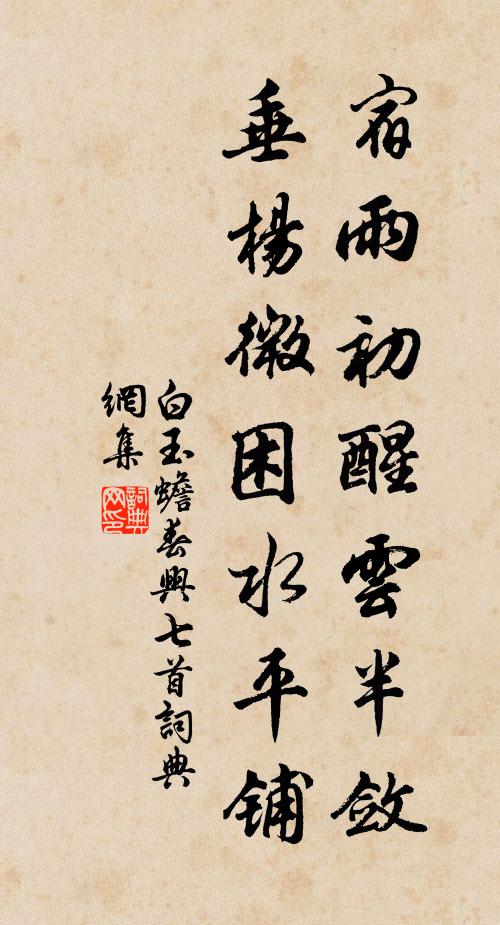 宿雨初醒雲半斂
垂楊微困水平鋪
白玉蟾春興七首詞典
網集
詞典网印